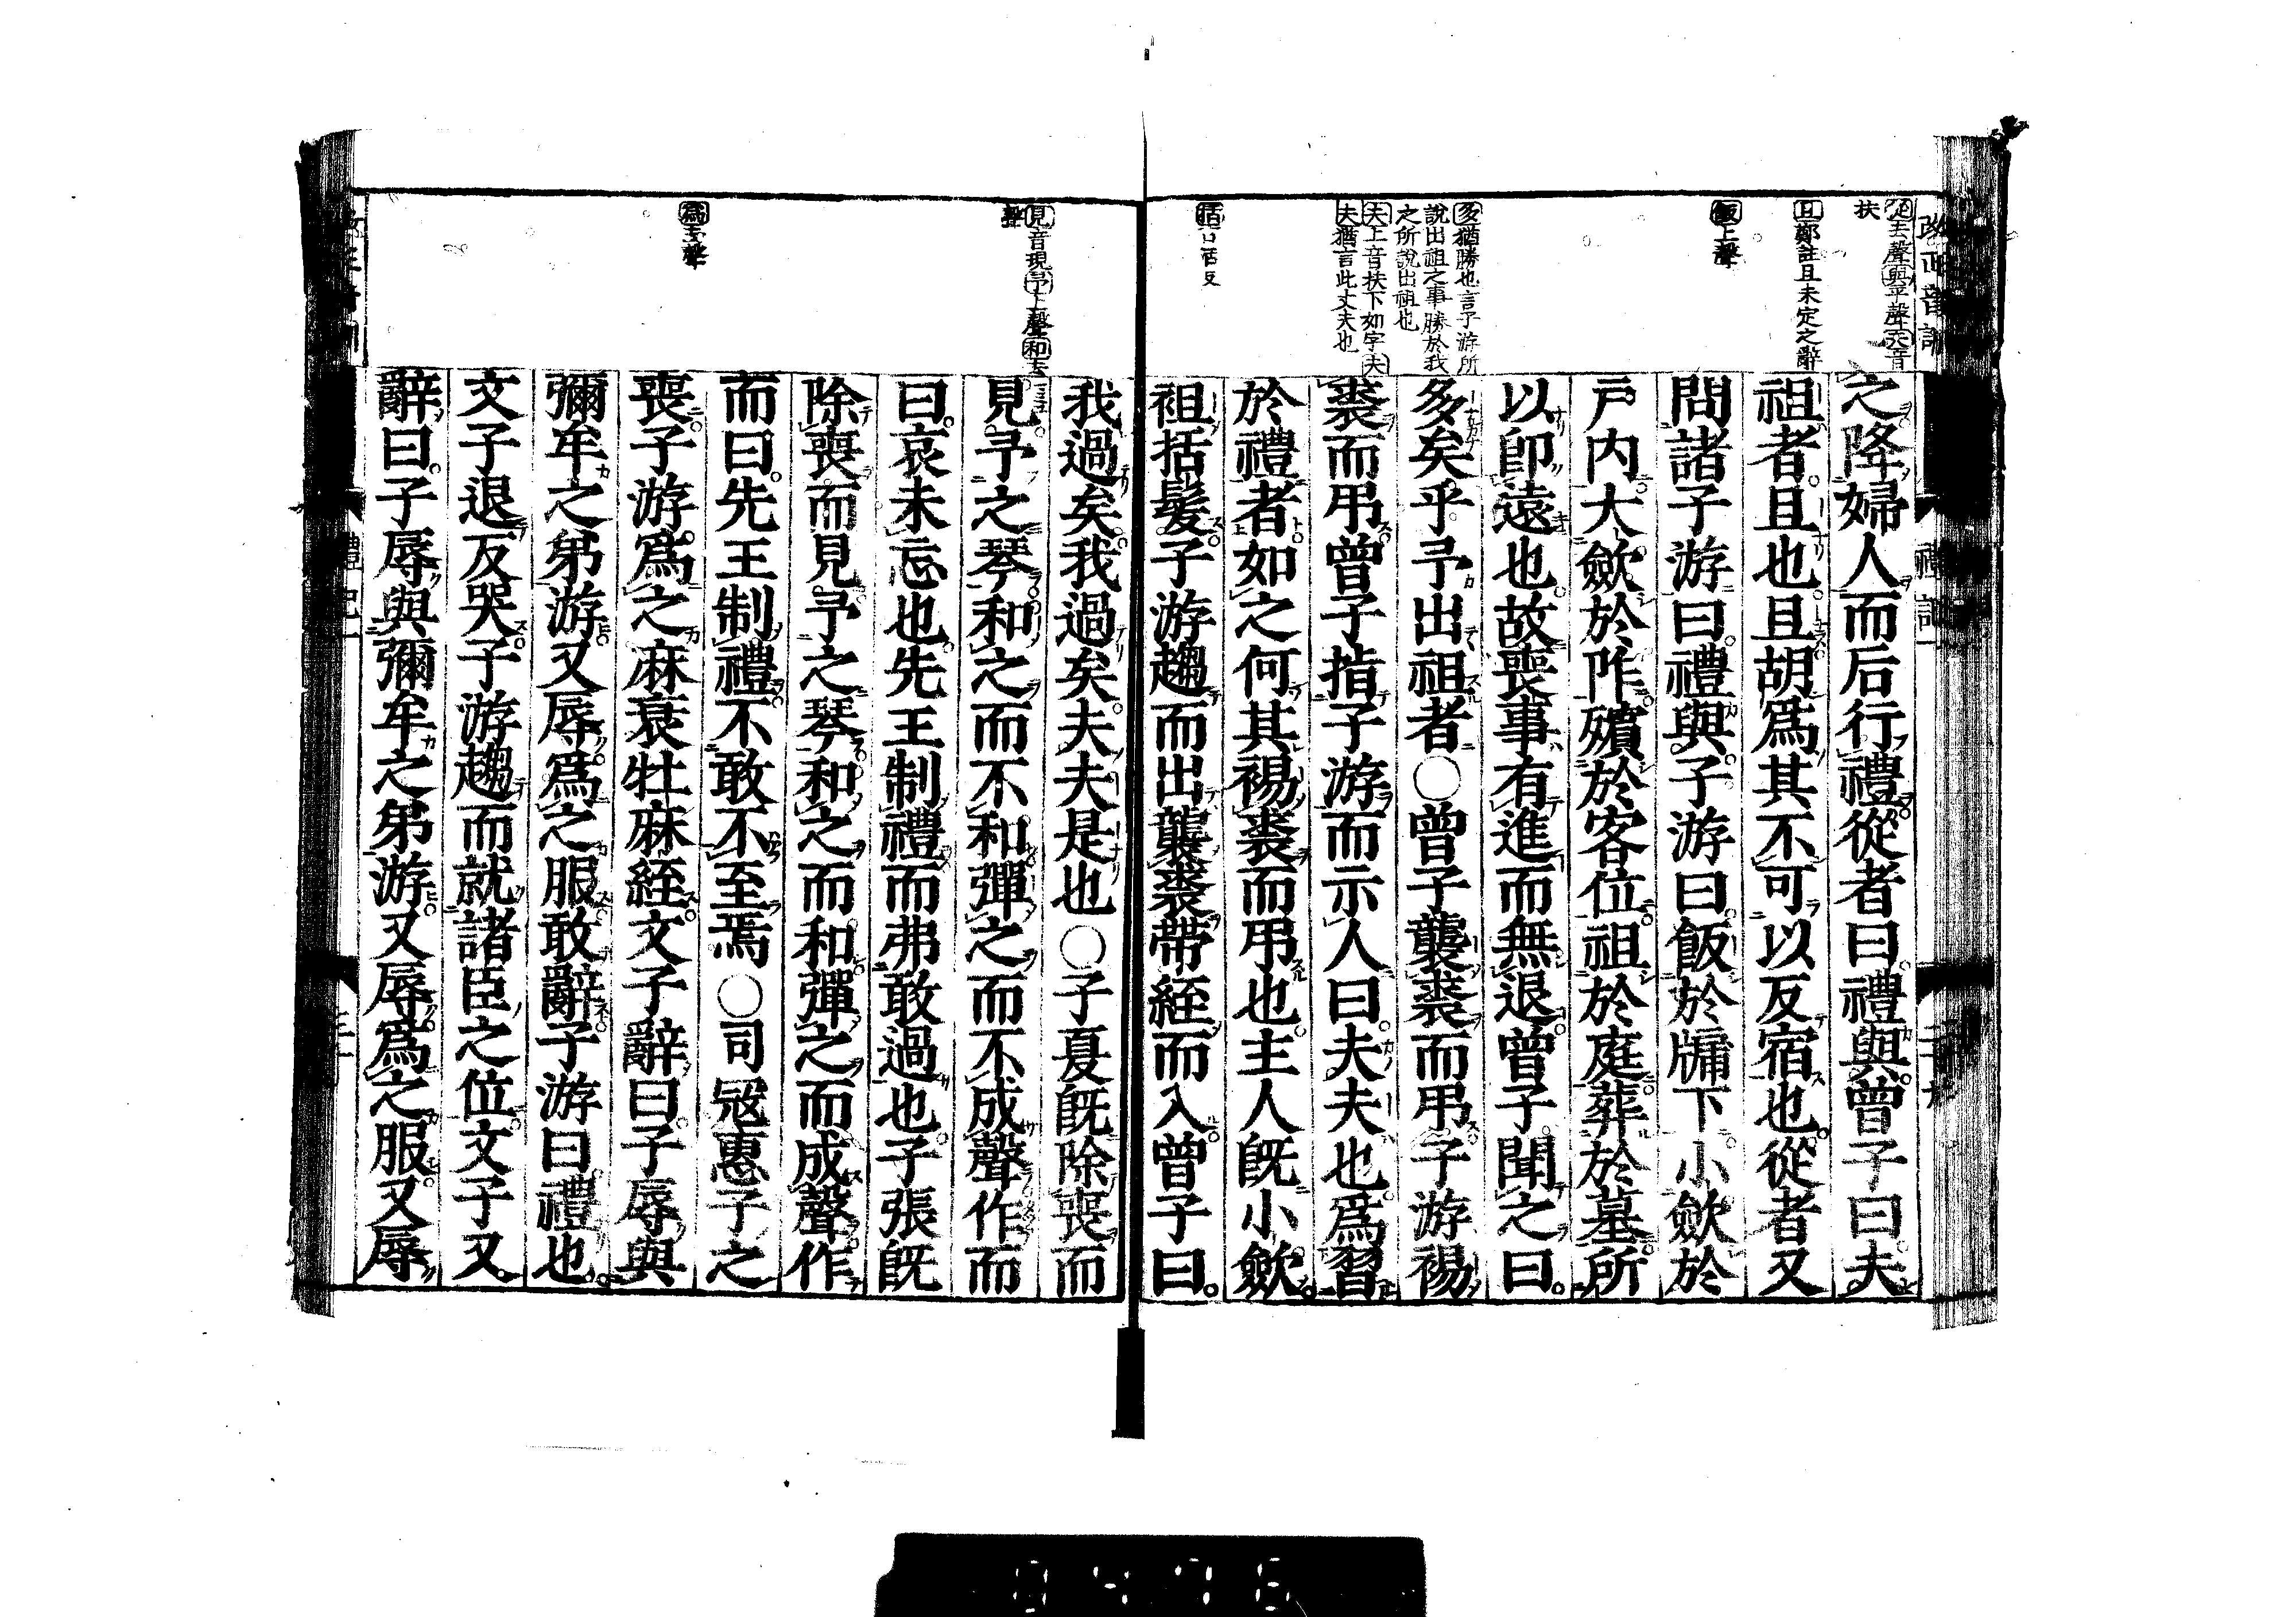 改正音訓
禮記一
從去聲與平聲夾音
扶
且鄭註且未定之辭
飯上聲
多猶勝也言子游所
說出祖之事勝於我
之所說出祖也
夫上音扶下如字夫
夫猶言此丈夫也
括古活反
之降婦人而后行禮從者曰禮與曾子曰夫
祖者且也且胡爲其不可以反宿也從者又
問諸子游曰禮與子游曰飯於牖下小斂於
戶内大斂於阼殯於客位祖於庭葬於墓所
以卽遠也故喪事有進而無退曾子聞之曰
多矣乎予出祖者○曾子襲裘而弔子游裼
裘而弔曾子指子游而示人曰夫夫也爲習
於禮者如之何其裼裘而弔也主人旣小斂
袒括髮子游趨而出襲裘帶絰而入曾子曰
見音現予上聲和去
聲
爲去聲
我過矣我過矣夫夫是也○子夏旣除喪而
見予之琴和之而不和彈之而不成聲作而
曰哀未忘也先王制禮而弗敢過也子張旣
除喪而見予之琴和之而和彈之而成聲作
而曰先王制禮不敢不至焉○司寇惠子之
喪子游爲之麻衰牡麻絰文子辭曰子辱與
彌牟之弟游又辱爲之服敢辭子游曰禮也
文子退反哭子游趨而就諸臣之位文子又
辭曰子辱與彌牟之弟游又辱爲之服又辱
禮記一
0476